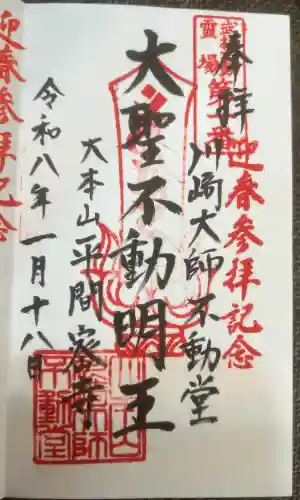 奉拝
武相
霊場第一番
迎春参拝記念
川崎大師不動堂
大聖不動明王
大本山平間寺
令和八年一月十八日
迎春参拝記念
不動堂